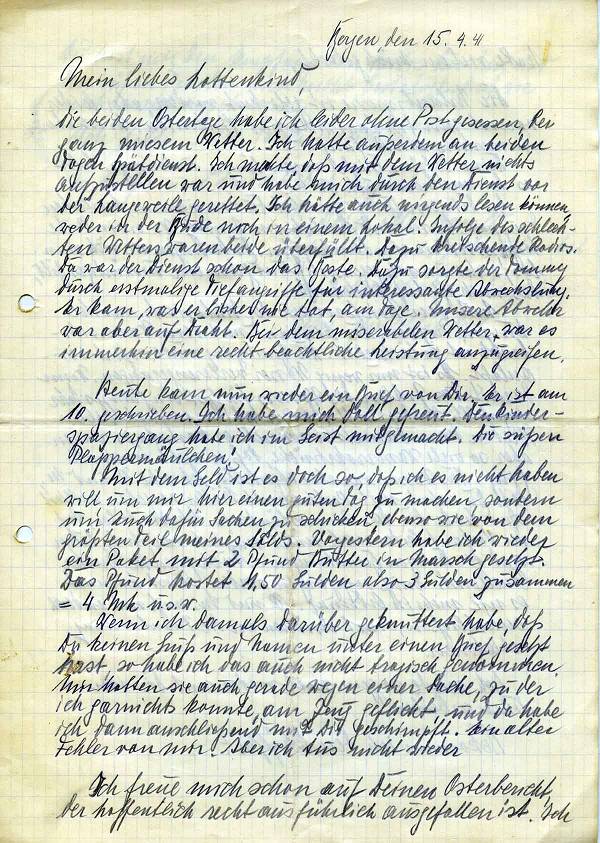 Bergen, den 15.4.41
Mein liebes Lottenkind,
die beiden Ostertage habe ich leider ohne Post gesessen, bei
ganz miesem Wetter. Ich hatte außerdem an beiden
Tagen Spätdienst. Ich merkte, daß mit dem Wetter nichts
anzustellen war und habe mich durch den Dienst vor
der Langeweile gerettet. Ich hätte auch nirgends lesen können,
weder in der Bude noch in einem Lokal. Infolge des schlech-
ten Wetters waren beide überfüllt. Dazu kreischende Radios.
Da war der Dienst schon das Beste. Dazu sorgte der Tommy
durch erstmalige Tiefangriffe für interessante Abwechslung.
Er kam, was er bisher nie tat, am Tage. Unsere Abwehr
war aber auf Draht. Bei dem miserabelen Wetter war es
immerhin eine recht beachtliche Leistung anzugreifen.
Heute kam nun wieder ein Brief von Dir. Er ist am
10. geschrieben. Ich habe mich doll gefreut. Den Kinder-
spaziergang habe ich im Geist mitgemacht. Die süßen
Plappermäulchen!
Mit dem Geld ist es doch so, daß ich es nicht haben
will um mir hier einen guten Tag zu machen, sondern
um Euch dafür Sachen zu schicken, ebenso wie von dem
größten Teil meines Solds. Vorgestern habe ich wieder
ein Paket mit 2 Pfund Butter in Marsch gesetzt.
Das Pfund kostet 1,50 Gulden also 3 Gulden zusammen
= 4 Mk u.s.w.
Wenn ich damals darüber geknuttert habe, daß
Du keinen Gruß und Namen unter einen Brief gesetzt
hast, so habe ich das auch nicht tragisch genommen.
Mir hatten sie auch gerade wegen einer Sache, zu der
ich garnichts konnte, am Zeug geflickt, und da habe
ich dann anschließend mit Dir geschimpft. Ein alter
Fehler von mir. Aber ich tus nicht wieder
Ich freue mich schon auf Deinen Osterbericht,
der hoffentlich recht ausführlich ausgefallen ist. Ich